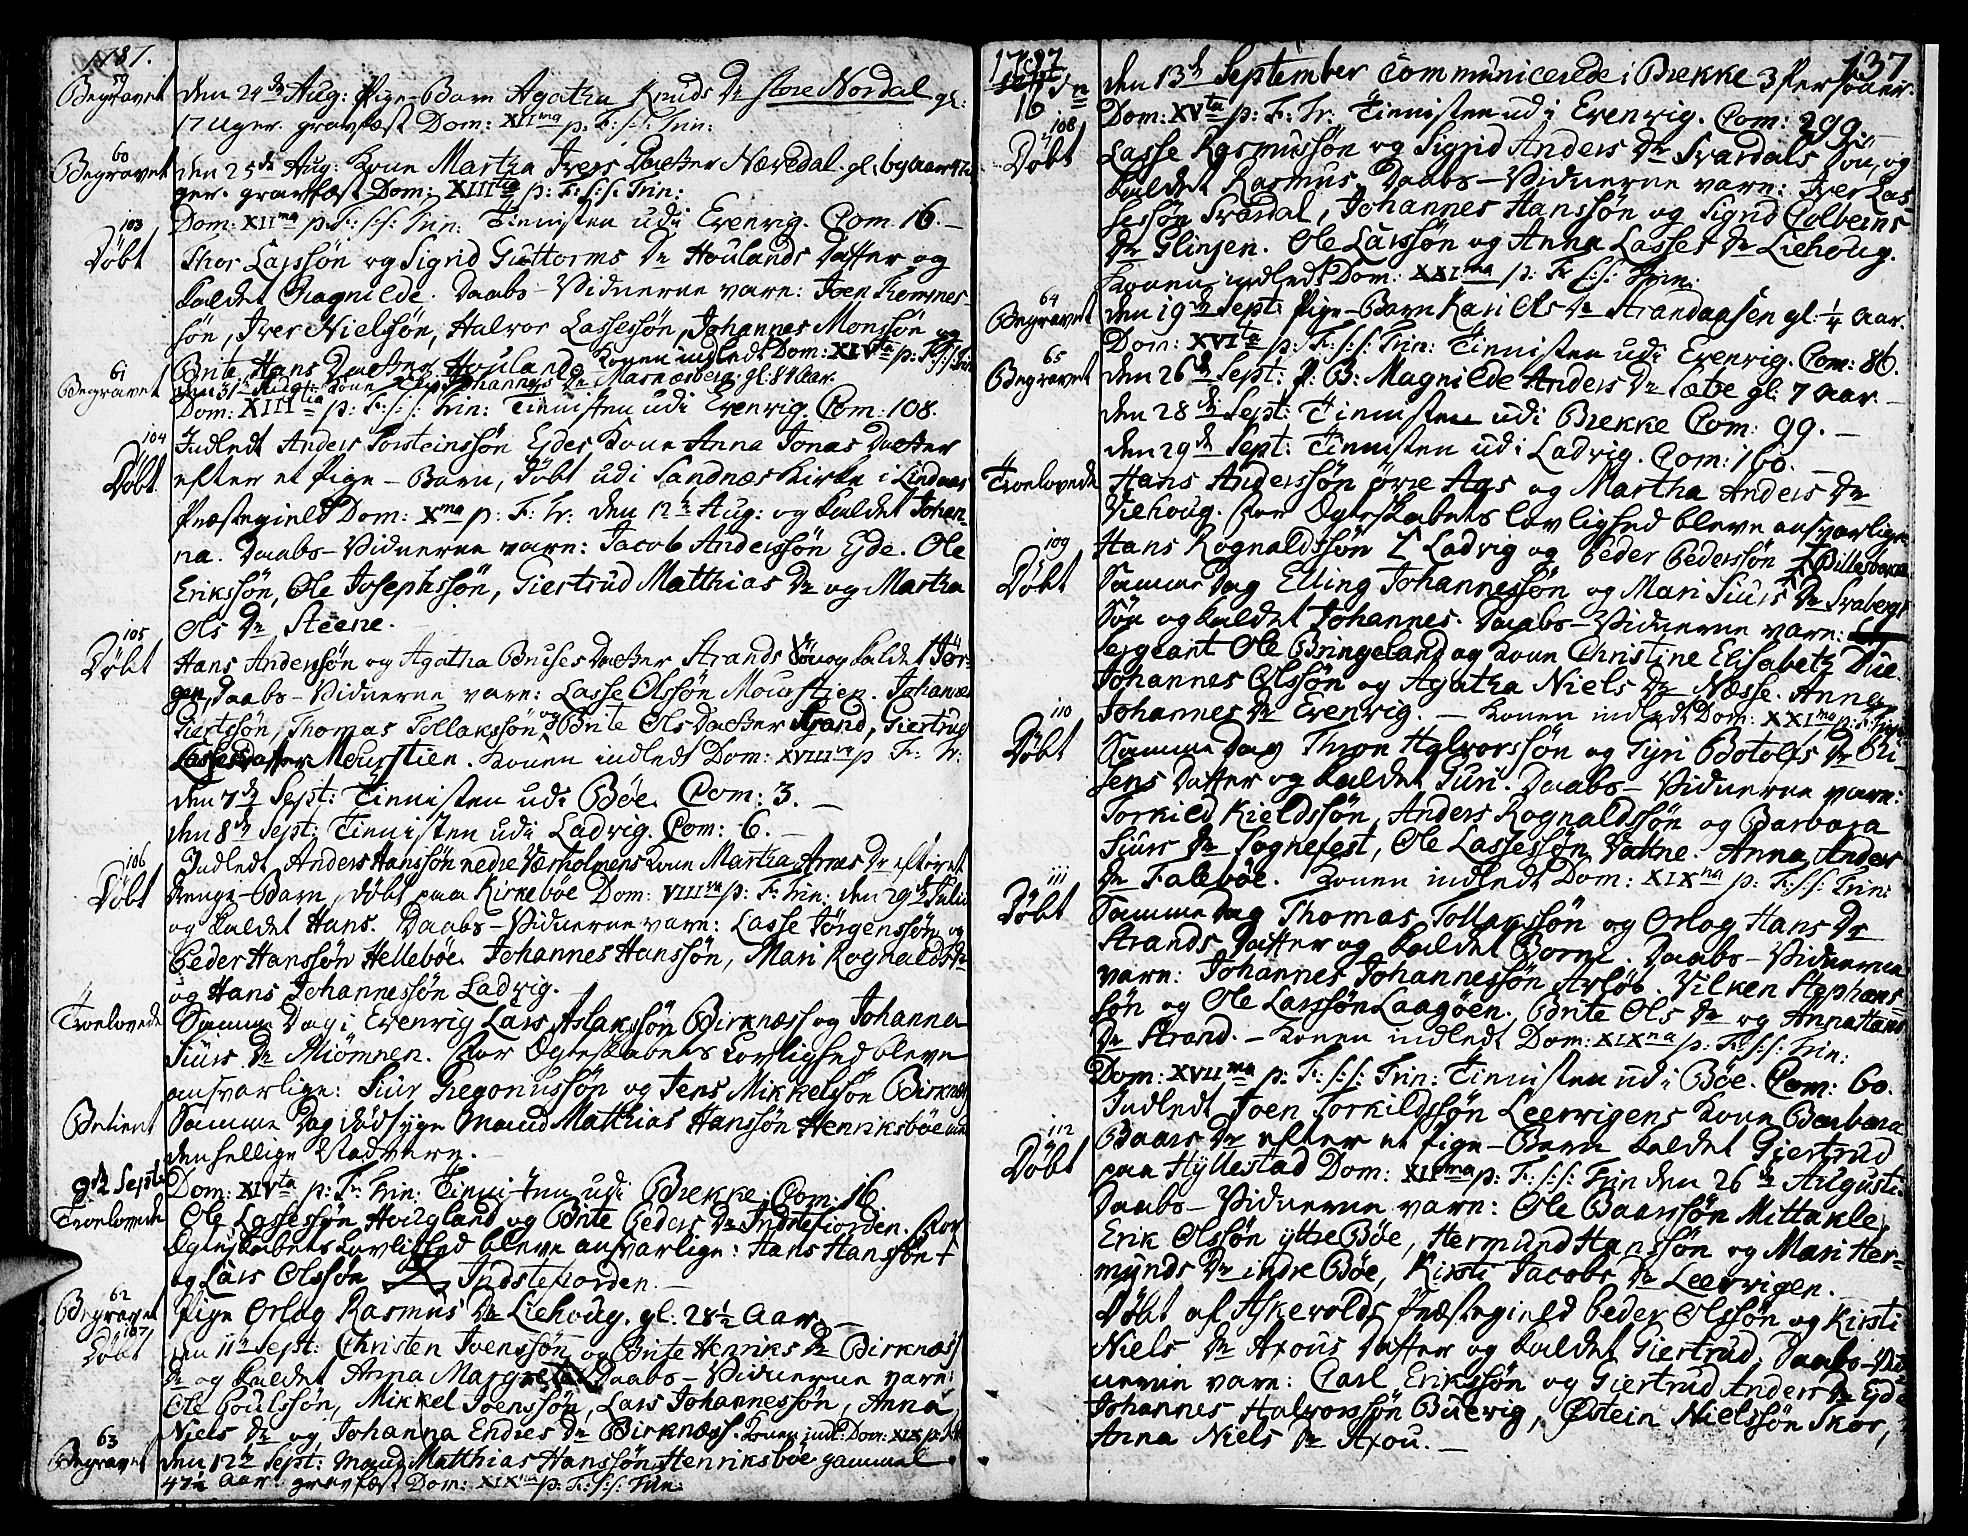 1787.
59
Begravet den 24de Aug: Pige-Barn Agatha Knuds Dr store Nordal gl:
17 Uger. gravfæst Dom: XIIma p: F: S:S: Trin:
60
Begravet den 25de Aug: Kone Martha Ivers Datter Nævedal. gl. 69 Aar
ger. gravfæst Dom: XIIItia p: F: S:S: Trin:
Dom: XIIma p: F: S:S: Trin: Tienisten udi Evenvig. Com. 16. —
103
Døbt Thor Larssøn og Sigrid Guttorms Dr Houlands Datter og
kaldet Ragnilde. Daabs-Vidnerne vare: Joen Thommes
søn, Iver Nielssøn, Halvor Lassessøn, Johannes Monssøn og
Brite Hans Datter Houland. Konen indledt Dom: XIVta p: F: S:S: Trin
61
Begravet den 31te Aug: Kone Johannes Dr Masnæsberg. gl: 84 Aar.
Dom: XIIItia p: F: S:S: Trin: Tienisten udi Evenvig. Com: 108.
104
Døbt Indledt Anders Torsteinssøn Eides Kone Anna Jonas Datter
efter et Pige-Barn, døbt udi Sandnæs Kirke i Lindaas
Præstegield Dom: Xma p: F: Tr: den 12te Aug: og kaldet Johan-
na. Daabs-Vidnerne vare: Jacob Anderssøn Eyde. Ole
Erikssøn, Ole Josephssøn, Giertrud Matthias Dr og Martha
Ols Dr Steene.
105
Døbt Hans Anderssøn og Agatha Bruses Datter Strands Søn og kaldet Jør-
gen, Daabs-Vidnerne vare: Lasse Olssøn Mourstien. Johannes
Giertssøn, Thomas Tollakssøn, og Brite Ols Datter Strand, Giertrud
Lasses Datter Mourstien. Konen indledt Dom: XVIIIva p F: Tr:
den 7de Sept: Tienisten udi Bøe. Com: 3. —
den 8de Sept: Tienisten udi Ladvig. Com: 6. —
106
Døbt Indledt Anders Hanssøn nedre Værholmens Kone Martha Arnes Dr efter et
Drenge-Barn, døbt paa Kirkebøe Dom: VIIIva p: F: Trin: den 29de Julii
og kaldet Hans. Daabs-Vidnerne vare: Lasse Jørgenssøn og
Peder Hanssøn Hellebøe. Johannes Hanssøn, Mari Rognalds Dr
og Hans Johannessøn Ladvig.
Troelovede Samme Dag i Evenvig Lars Aslakssøn Birknæss og Johanna
Siurs Dr Miømnen. For Ægteskabets Lovlighed bleve
ansvarlige: Siur Gregoriussøn og Jens Mikkelssøn Birknæs
Betient Samme Dag Sødsyge Mand Matthias Hanssøn Henriksbøe med
den hellige Nadvere.
9de Sept: Dom: XIVta p: F: Trin: Tienisten udi Brekke. Com: 16
Troelovede Ole Lassessøn Hougland og Brite Peders Dr Indrefiorden. For
Ægteskabets Lovlighed bleve ansvarlige: Hans Hanssøn +
og Lars Olssøn Indstefiorden.
62
Begravet Pige Orlog Rasmus Dr Liehoug. gl: 28½ Aar. —
107
Døbt den 11te Sept: Christen Joenssøn og Brite Henriks Dr Birknæss
Dr og kaldet Anna Margrete Daabs-Vidnerne vare:
Ole Poulssøn, Mikkel Joenssøn, Lars Johannessøn, Anna
Niels Dr og Johanna Endres Dr Birknæss. Konen indl: Dom: XIX p: F:
63
Begravet den 12te Sept: Mand Matthias Hanssøn Henriksbøe gammel
47½ Aar. gravfæst Dom: XIXna p: F: S:S: Trin:
1787 137
Sept:
den 13de September Communicerede i Brekke 3 Personer.
16
Dom: XVta p: F: Tr: Tienisten udi Evenvig. Com: 299.
108
Døbt Lasse Rasmussøn og Sigrid Anders Dr Svardals Søn, og
kaldet Rasmus. Daabs-Vidnerne vare: Iver Las-
sessøn Svardal, Johannes Hanssøn og Sigrid Colbeins
Dr Glinsen. Ole Larssøn og Anna Lasses Dr Liehoug.
Konen indledt Dom: XXIma p: F: S:S: Trin:
64
Begravet den 19de Sept: Pige-Barn Kari Ols Dr Strandaasen gl: ¼ Aar.
Dom: XVIta p: F: S:S: Trin: Tienisten udi Evenvig. Com: 86.
65
Begravet den 26de Sept: P: B: Magnilde Anders Dr Tæbe gl: 7 Aar
den 28de Sept: Tienisten udi Brekke Com: 99. —
den 29de Sept: Tienisten udi Ladvig. Com: 160. —
Troelovede Hans Anderssøn øvre Aas og Martha Anders Dr
Viehoug. For Ægteskabets lovlighed bleve ansvarlige
Hans Rognaldssøn Ladvig og Peder Pederssøn Dillesbakke
109
Døbt Samme Dag Elling Johannessøn og Mari Siurs Dr Svabergs
Søn og kaldet Johannes. Daabs-Vidnerne vare:
Sergeant Ole Bringeland og Kone Christine Elisabeth Due.
Johannes Olssøn og Agatha Niels Dr Næsse. Anna
Johannes Dr Evenvig. — Konen indledt Dom: XXIma p: F: Trin
110
Døbt Samme Dag Thron Halvorssøn og Gyri Botolfs Dr Ri-
sens Datter og kaldet Guri. Daabs-Vidnerne vare:
Torkild Kieldssøn, Anders Rognaldssøn og Barbara
Siurs Dr Sognefest, Ole Lassessøn Vatne. Anna Anders
Dr Falebøe. Konen indledt Dom: XIXna p: F: S:S: Trin:
111
Døbt Samme Dag Thomas Tollakssøn og Orlog Hans Dr
Strands Datter og kaldet Borni. Daabs-Vidnerne
vare: Johannes Johannessøn Arsløb. Vilken Stephans-
søn og Ole Larssøn Laagøen, Brite Ols Dr og Anna Hans
Dr Strand. — Konen indledt Dom: XIXna p: F: S:S: Trin:
Dom: XVIIma p: F: S:S: Trin: Tienisten udi Bøe. Com: 60.
Indledt Joen Torkildssøn Leervigens Kone Barbara
112
Døbt Baars Dr efter et Pige-Barn kaldet Giertrud
paa Hyllestad Dom: XIIma p: F: S:S: Trin den 26de Augusti.
Daabs-Vidnerne vare: Ole Baarssøn Mittakle,
Erik Olssøn yttre Bøe, Hermund Hanssøn og Mari Her-
munds Dr indre Bøe, Kirsti Jacobs Dr Leervigen.
Døbt af Askevolds Præstegield Peder Olssøn og Kirsti
Niels Dr Axous Datter og kaldet Giertrud, Daabs-Vid-
nerne vare: Carl Erikssøn og Giertrud Anders Dr Eyde
Johannes Halvorssøn Buevig, Østein Nielssøn Skor,
Anna Niels Dr Axou. —